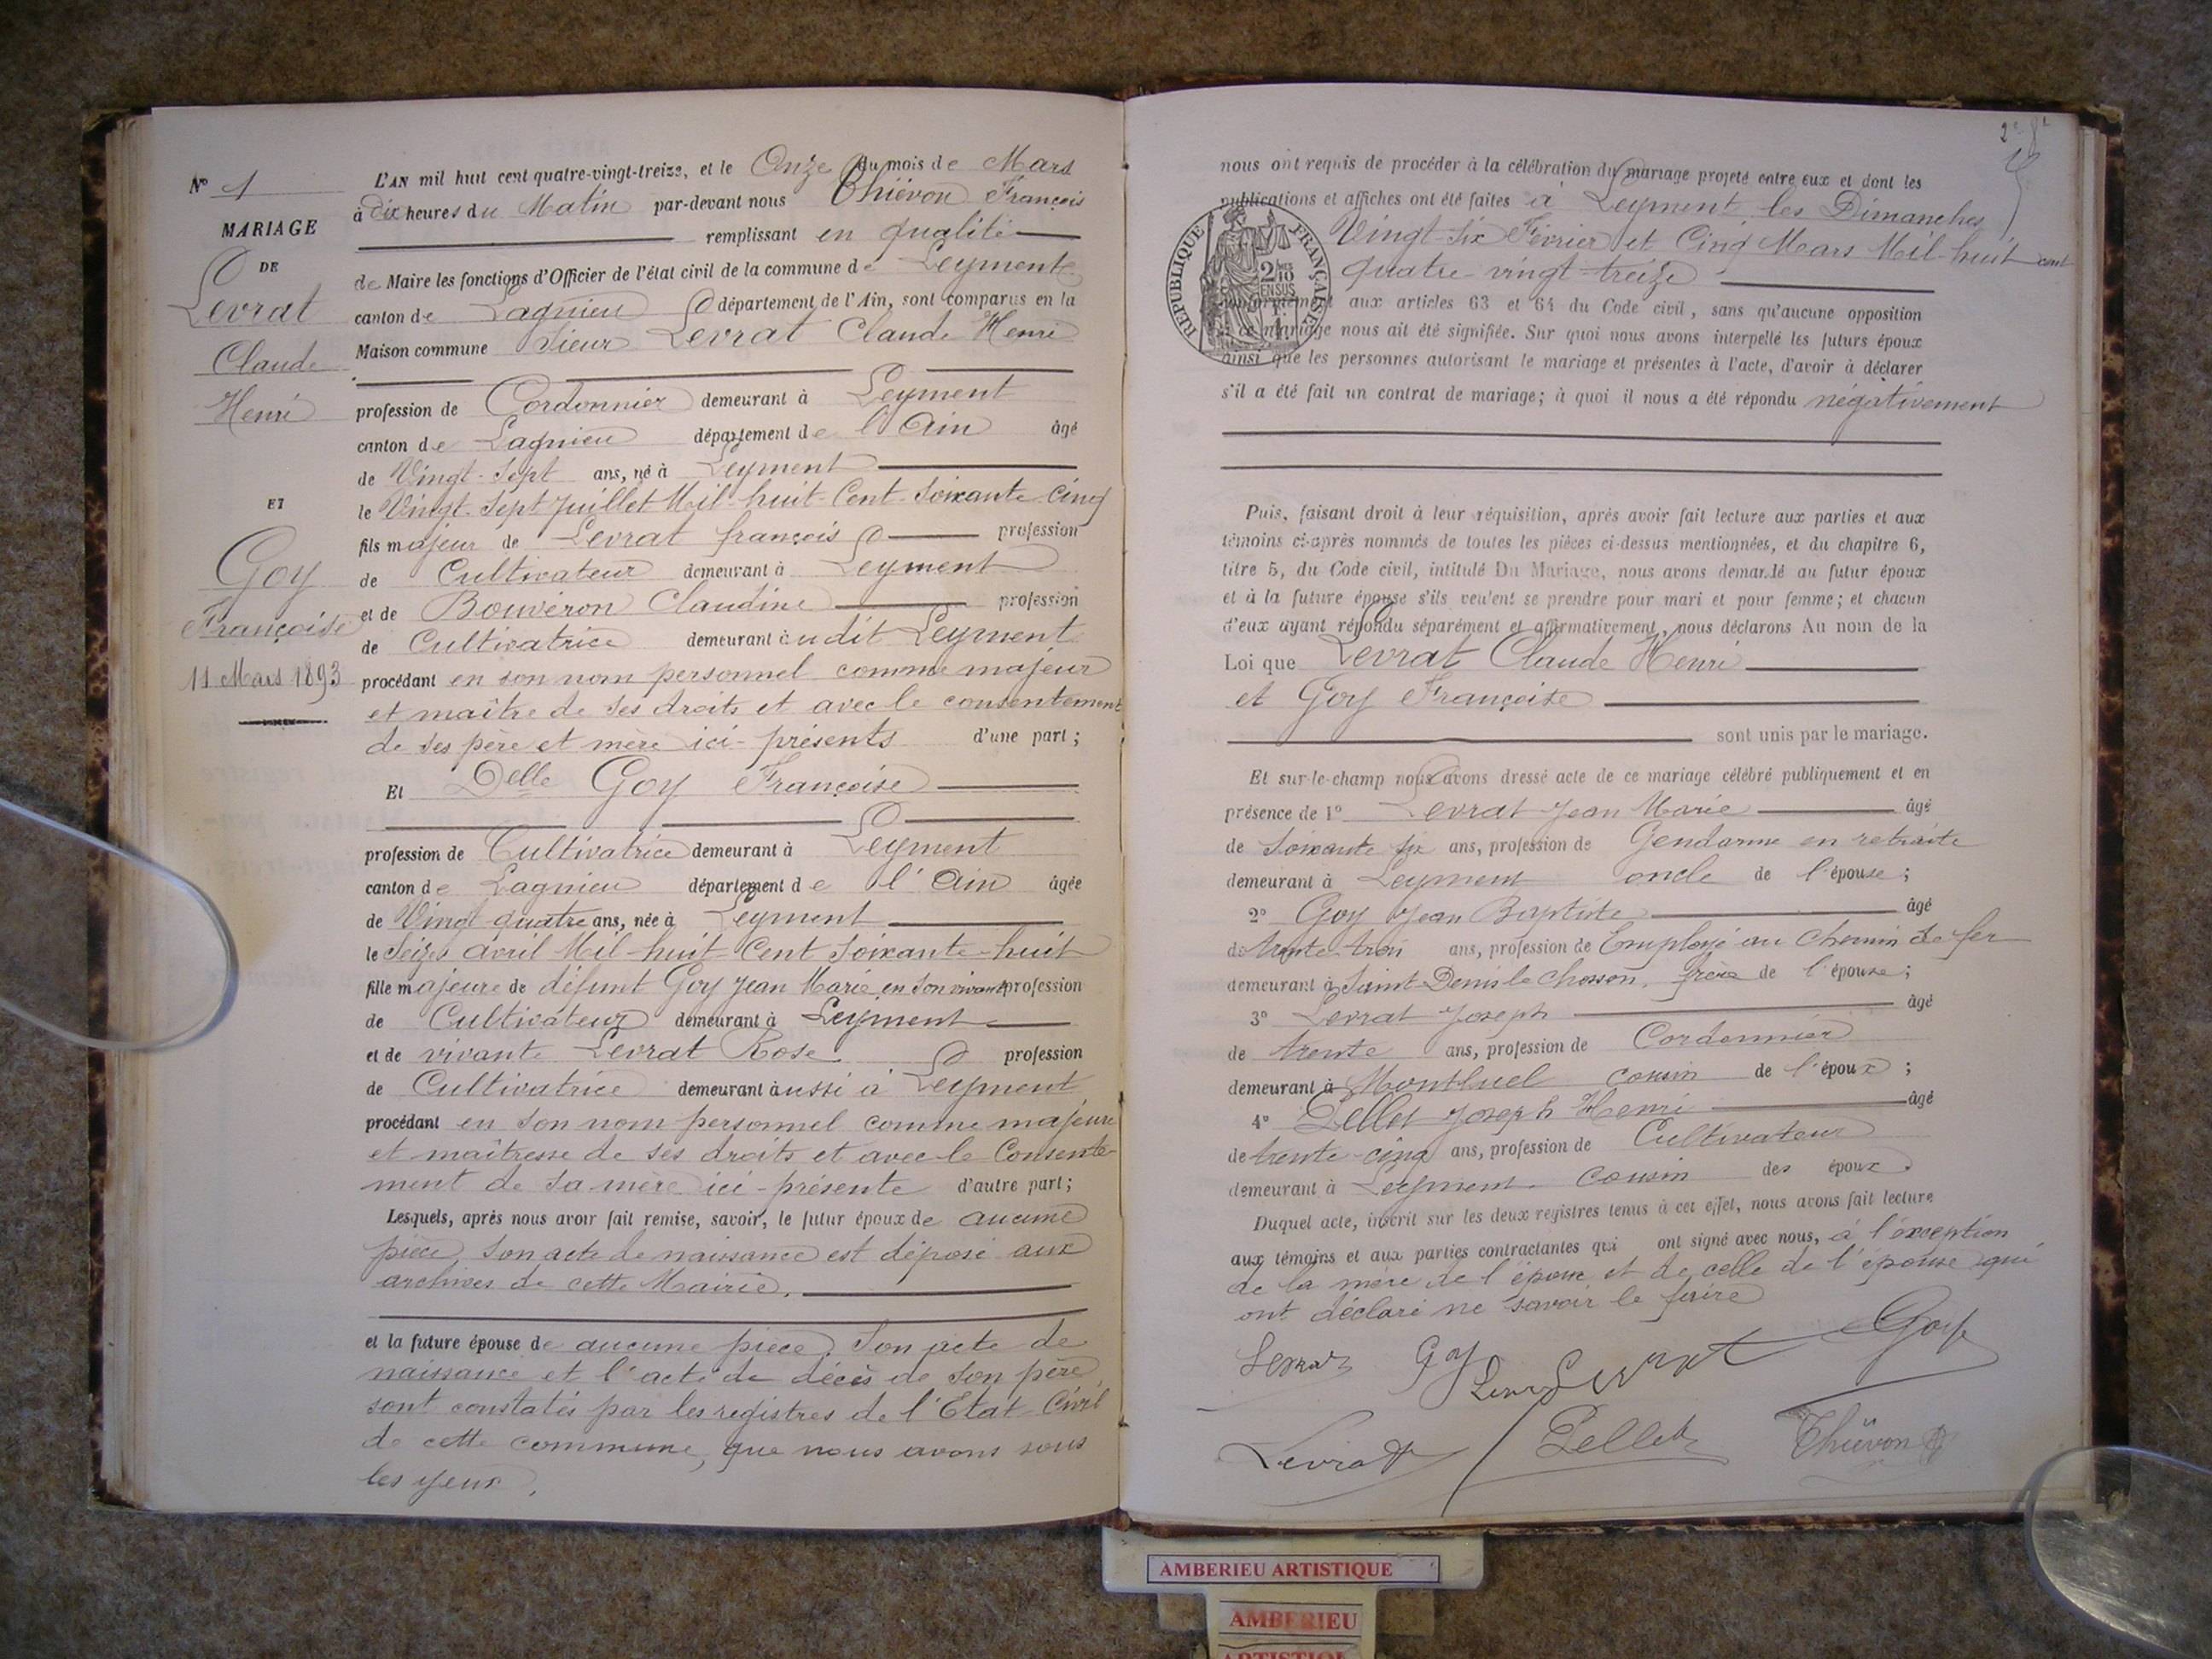 N° 1
MARIAGE
DE
Levrat
Claude
Henri
ET
Goy
Françoise
11 Mars 1893
L'AN mil huit cent quatre-vingt-treize, et le Onze du mois de Mars
à dix heures du Matin par-devant nous Thiévon François
remplissant en qualité
de Maire les fonctions d'Officier de l'état civil de la commune de Leyment
canton de Lagnieu département de l'Ain, sont comparus en la
Maison commune Sieur Levrat Claude Henri
profession de Cordonnier demeurant à Leyment
canton de Lagnieu département de l'Ain âgé
de Vingt-Sept ans, né à Leyment
le Vingt-Sept Juillet Mil-huit-Cent-Soixante-Cinq
fils majeur de Levrat françois profession
de Cultivateur demeurant à Leyment
et de Bouvéron Claudine profession
de Cultivatrice demeurant audit Leyment
procédant en son nom personnel comme majeur
et maître de ses droits et avec le consentement
de ses père et mère ici-présents d'une part;
Et Delle Goy Françoise
profession de Cultivatrice demeurant à Leyment
canton de Lagnieu département de l'Ain âgée
de Vingt quatre ans, née à Leyment
le Seize avril Mil-huit-Cent Soixante-huit
fille majeure de défunt Goy Jean Marie en son vivant profession
de Cultivateur demeurant à Leyment
et de vivante Levrat Rose profession
de Cultivatrice demeurant aussi à Leyment
procédant en son nom personnel comme majeure
et maîtresse de ses droits et avec le Consente-
ment de sa mère ici-présente d'autre part;
Lesquels, après nous avoir fait remise, savoir, le futur époux de aucune
pièce, son acte de naissance est déposé aux
archives de cette Mairie.
et la future épouse de aucune pièce. Son acte de
naissance et l'acte de décès de son père,
sont constatés par les registres de l'Etat-Civil
de cette commune, que nous avons sous
les yeux.
nous ont requis de procéder à la célébration du mariage projeté entre eux et dont les
publications et affiches ont été faites à Leyment, les Dimanches
Vingt-Six Février et Cinq Mars Mil-huit cent
quatre-vingt-treize
RÉPUBLIQUE FRANÇAISE
2/10 EN SUS
conformément aux articles 63 et 64 du Code civil, sans qu'aucune opposition
à ce mariage nous ait été signifiée. Sur quoi nous avons interpellé les futurs époux
ainsi que les personnes autorisant le mariage et présentes à l'acte, d'avoir à déclarer
s'il a été fait un contrat de mariage; à quoi il nous a été répondu négativement
Puis, faisant droit à leur réquisition, après avoir fait lecture aux parties et aux
témoins ci-après nommés de toutes les pièces ci-dessus mentionnées, et du chapitre 6,
titre 5, du Code civil, intitulé Du Mariage, nous avons demandé au futur époux
et à la future épouse s'ils veulent se prendre pour mari et pour femme; et chacun
d'eux ayant répondu séparément et affirmativement, nous déclarons Au nom de la
Loi que Levrat Claude Henri
et Goy Françoise
sont unis par le mariage.
Et sur-le-champ nous avons dressé acte de ce mariage célébré publiquement et en
présence de 1° Levrat Jean Marie âgé
de Soixante six ans, profession de Gendarme en retraite
demeurant à Leyment oncle de l'épouse;
2° Goy Jean Baptiste âgé
de trente trois ans, profession de Employé au Chemin de fer
demeurant à Saint-Denis le Chosson, frère de l'épouse;
3° Levrat Joseph âgé
de trente ans, profession de Cordonnier
demeurant à Montluel cousin de l'époux;
4° Pellet Joseph Henri âgé
de trente-cinq ans, profession de Cultivateur
demeurant à Leyment. Cousin des époux.
Duquel acte, inscrit sur les deux registres tenus à cet effet, nous avons fait lecture
aux témoins et aux parties contractantes qui ont signé avec nous, à l'exception
de la mère de l'époux et de celle de l'épouse qui
ont déclaré ne savoir le faire
Levrat Goy Levrat Goy
Levrat Pellet Thiévon
AMBERIEU ARTISTIQUE
AMBERIEU
ARTISTIQUE